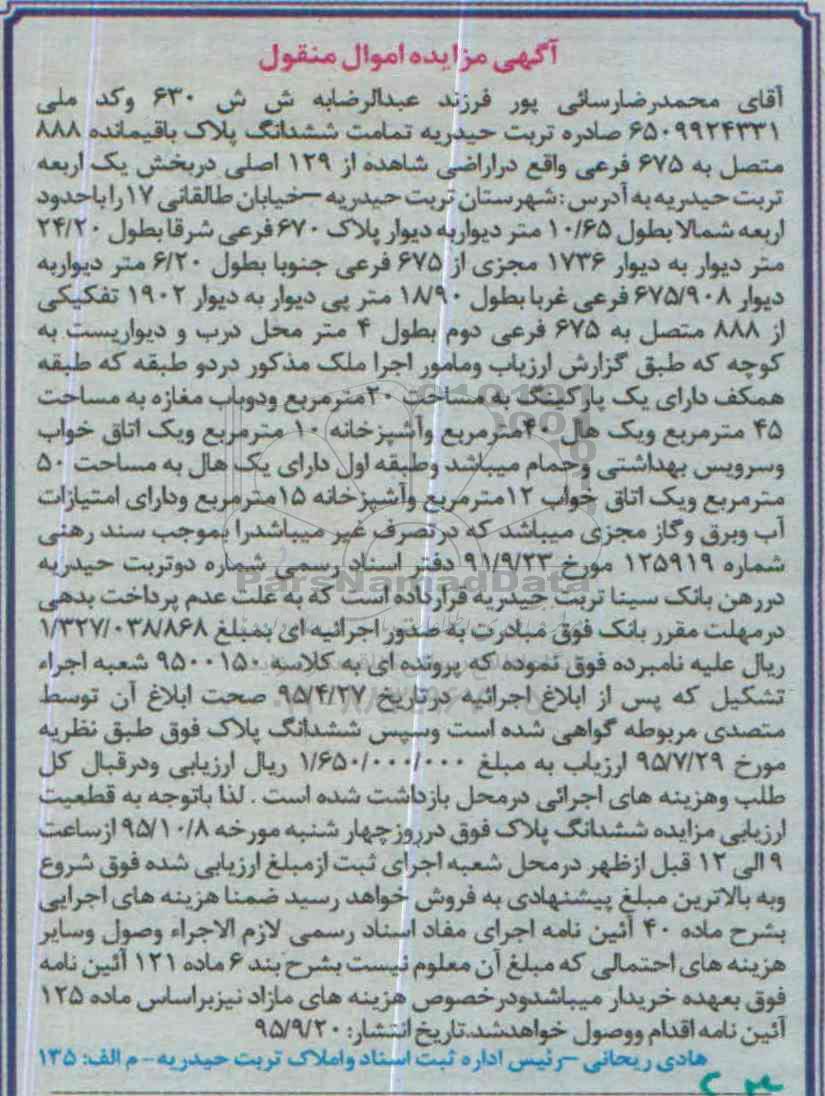 آگهی مزایده اموال منقول
آقای محمدرضارسائی پور فرزند عبدالرضابه ش ش ۶۳۰ وکد ملی
۶۵۰۹۹۲۴۳۳۱ صادره تربت حیدریه تمامت ششدانگ پلاک باقیمانده ۸۸۸
متصل به ۶۷۵ فرعی واقع دراراضی شاهده از ۱۲۹ اصلی دربخش یک اربعه
تربت حیدریه به آدرس : شهرستان تربت حیدریه –خیابان طالقانی ۱۷ راباحدود
اربعه شمالا بطول ۱۰/۶۵ متر دیواربه دیوار پلاک ۶۷۰ فرعی شرقا بطول ۲۴/۲۰
متر دیوار به دیوار ۱۷۳۶ مجزی از ۶۷۵ فرعی جنوبا بطول ۶/۲۰ متر دیواربه
دیوار ۶۷۵/۹۰۸ فرعی غربا بطول ۱۸/۹۰ متر پی دیوار به دیوار ۱۹۰۲ تفکیکی
از ۸۸۸ متصل به ۶۷۵ فرعی دوم بطول ۴ متر محل درب و دیواریست به
کوچه که طبق گزارش ارزیاب ومامور اجرا ملک مذکور دردو طبقه که طبقه
همکف دارای یک پارکینگ به مساحت ۲۰مترمربع ودوباب مغازه به مساحت
۴۵ مترمربع ویک هال ۴۰مترمربع وآشپزخانه ۱۰ مترمربع ویک اتاق خواب
وسرویس بهداشتی وحمام میباشد وطبقه اول دارای یک هال به مساحت ۵۰
مترمربع ویک اتاق خواب ۱۲مترمربع وآشپزخانه ۱۵مترمربع ودارای امتیازات
آب وبرق وگاز مجزی میباشد که درتصرف غیر میباشدرا بموجب سند رهنی
شماره ۱۲۵۹۱۹ مورخ ۹۱/۹/۲۳ دفتر اسناد رسمی شماره دوتربت حیدریه
دررهن بانک سینا تربت حیدریه قرارداده است که به علت عدم پرداخت بدهی
درمهلت مقرر بانک فوق مبادرت به صدور اجرائیه ای بمبلغ ۱/۳۲۷/۰۳۸/۸۶۸
ریال علیه نامبرده فوق نموده که پرونده ای به کلاسه ۹۵۰۰۱۵۰ شعبه اجراء
تشکیل که پس از ابلاغ اجرائیه درتاریخ ۹۵/۴/۲۷ صحت ابلاغ آن توسط
متصدی مربوطه گواهی شده است وسپس ششدانگ پلاک فوق طبق نظریه
مورخ ۹۵/۷/۲۹ ارزیاب به مبلغ ۱/۶۵۰/۰۰۰/۰۰۰ ریال ارزیابی ودرقبال کل
طلب وهزینه های اجرائی درمحل بازداشت شده است . لذا باتوجه به قطعیت
ارزیابی مزایده ششدانگ پلاک فوق درروزچهار شنبه مورخه ۹۵/۱۰/۸ ازساعت
۹ الی ۱۲ قبل ازظهر درمحل شعبه اجرای ثبت ازمبلغ ارزیابی شده فوق شروع
وبه بالاترین مبلغ پیشنهادی به فروش خواهد رسید ضمنا هزینه های اجرایی
بشرح ماده ۴۰ آئین نامه اجرای مفاد اسناد رسمی لازم الاجراء وصول وسایر
هزینه های احتمالی که مبلغ آن معلوم نیست بشرح بند ۶ ماده ۱۲۱ آئین نامه
فوق بعهده خریدار میباشدودرخصوص هزینه های مازاد نیزبراساس ماده ۱۲۵
آئین نامه اقدام ووصول خواهدشد.تاریخ انتشار: ۹۵/۹/۲۰
هادی ریحانی –رئیس اداره ثبت اسناد واملاک تربت حیدریه- م الف: ۱۳۵
ParsNamadData